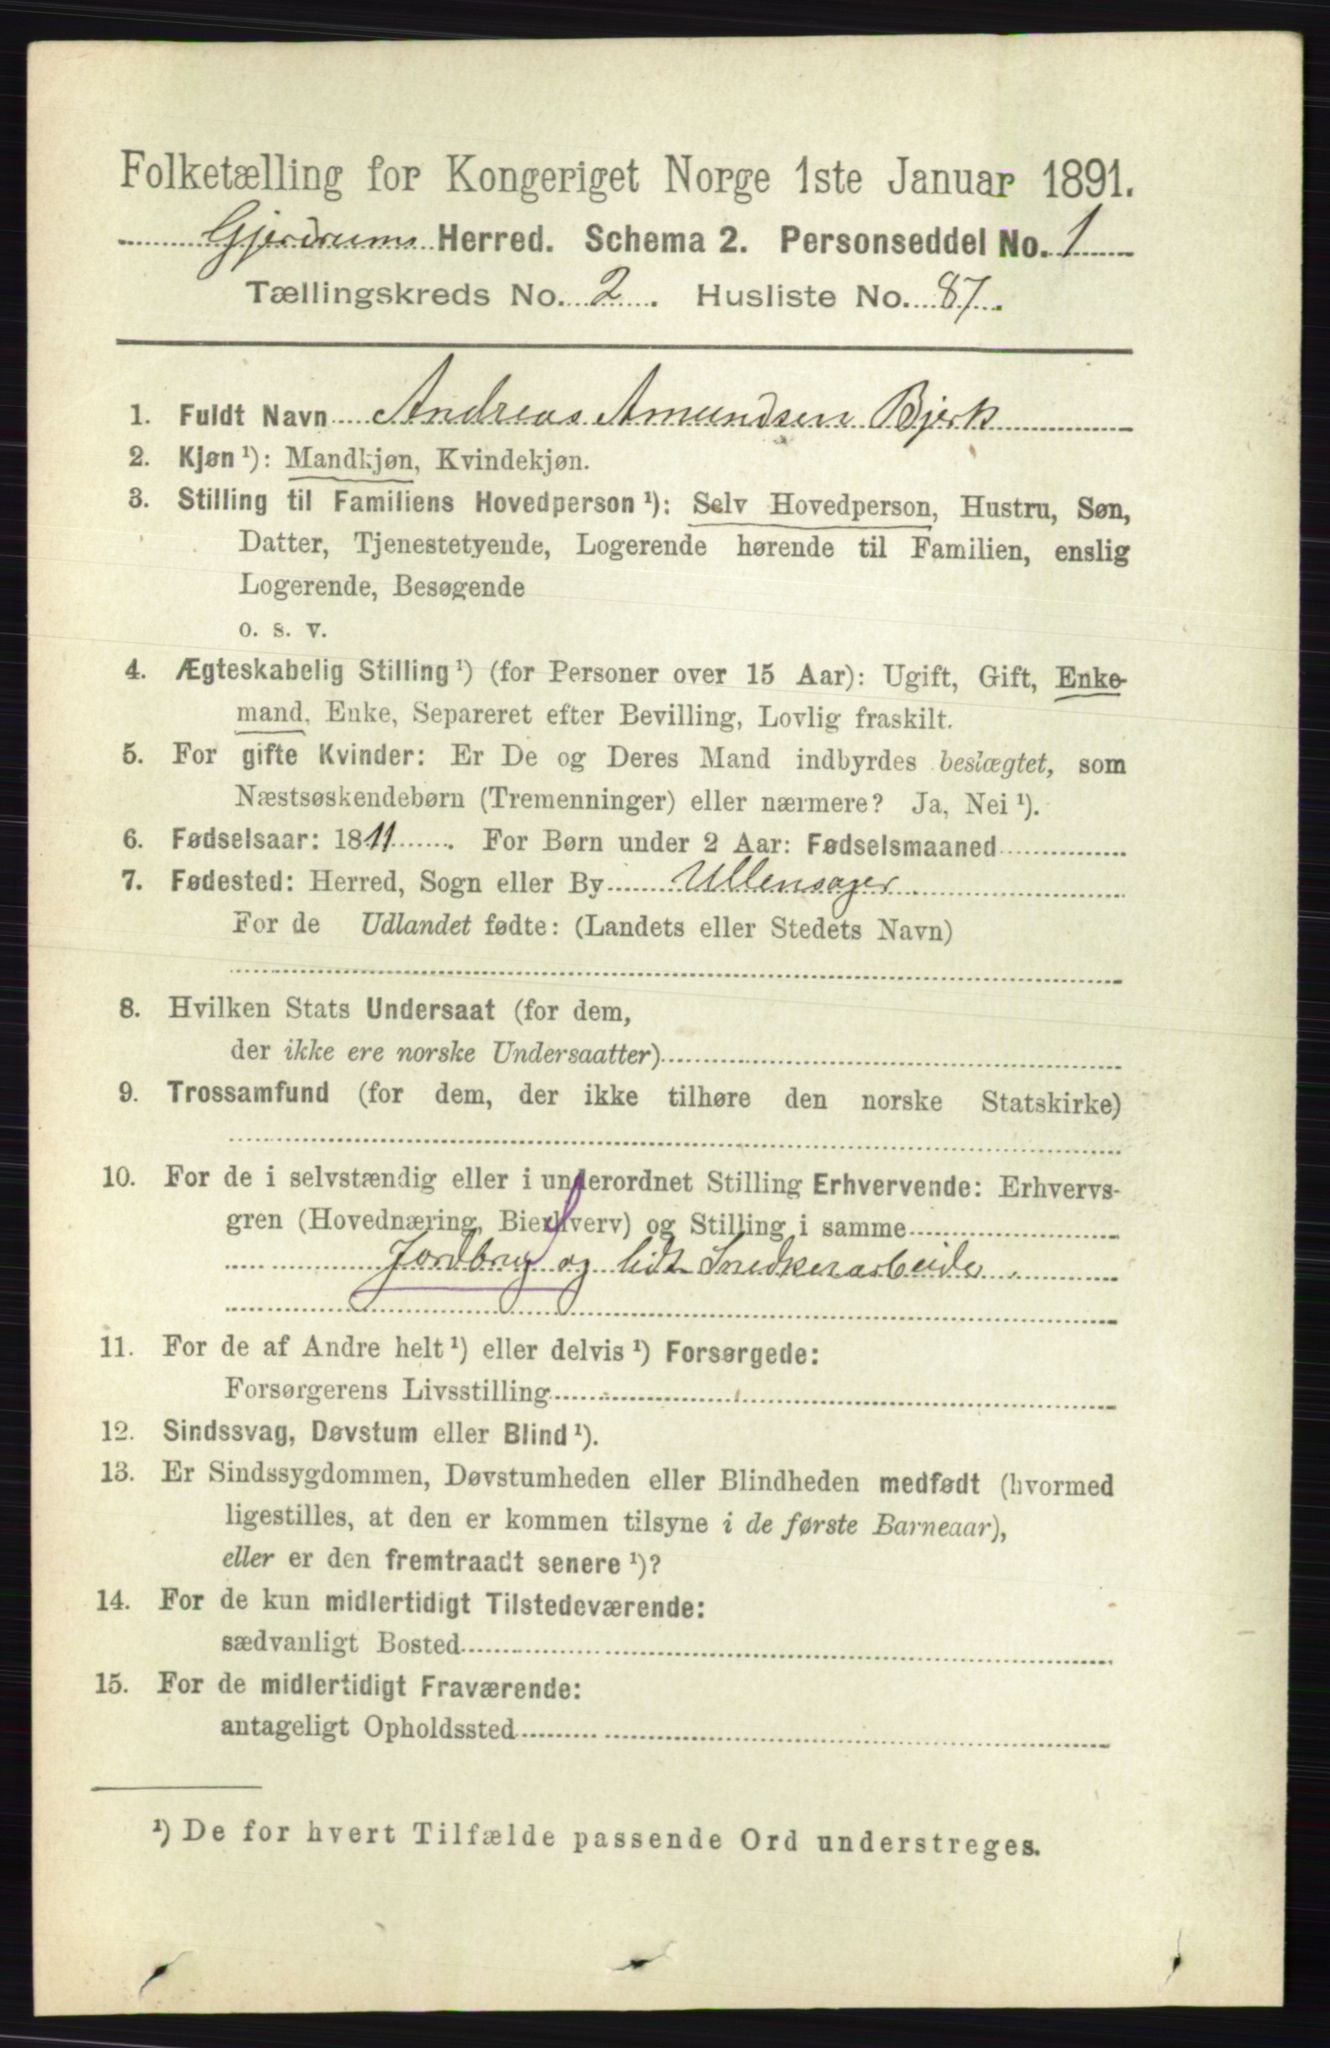 Folketælling for Kongeriget Norge 1ste Januar 1891.
Gjerdrums Herred. Schema 2. Personseddel No. 1
Tællingskreds No. 2. Husliste No. 87.
1. Fuldt Navn Andreas Amundsen Bjerk
2. Kjøn ¹): Mandkjøn, Kvindekjøn.
3. Stilling til Familiens Hovedperson ¹): Selv Hovedperson, Hustru, Søn,
Datter, Tjenestetyende, Logerende hørende til Familien, enslig
Logerende, Besøgende
o. s. v.
4. Ægteskabelig Stilling ¹) (for Personer over 15 Aar): Ugift, Gift, Enke-
mand, Enke, Separeret efter Bevilling, Lovlig fraskilt.
5. For gifte Kvinder: Er De og Deres Mand indbyrdes beslægtet, som
Næstsøskendebørn (Tremenninger) eller nærmere? Ja, Nei ¹).
6. Fødselsaar: 1811. For Børn under 2 Aar: Fødselsmaaned
7. Fødested: Herred, Sogn eller By Ullensager.
For de Udlandet fødte: (Landets eller Stedets Navn)
8. Hvilken Stats Undersaat (for dem,
der ikke ere norske Undersaatter)
9. Trossamfund (for dem, der ikke tilhøre den norske Statskirke)
10. For de i selvstændig eller i underordnet Stilling Erhvervende: Erhvervs-
gren (Hovednæring, Bierhverv) og Stilling i samme
Jordbrug og lidt Snedkerarbeide.
11. For de af Andre helt ¹) eller delvis ¹) Forsørgede:
Forsørgerens Livsstilling
12. Sindssvag, Døvstum eller Blind ¹).
13. Er Sindssygdommen, Døvstumheden eller Blindheden medfødt (hvormed
ligestilles, at den er kommen tilsyne i de første Barneaar),
eller er den fremtraadt senere ¹)?
14. For de kun midlertidigt Tilstedeværende:
sædvanligt Bosted
15. For de midlertidigt Fraværende:
antageligt Opholdssted
¹) De for hvert Tilfælde passende Ord understreges.